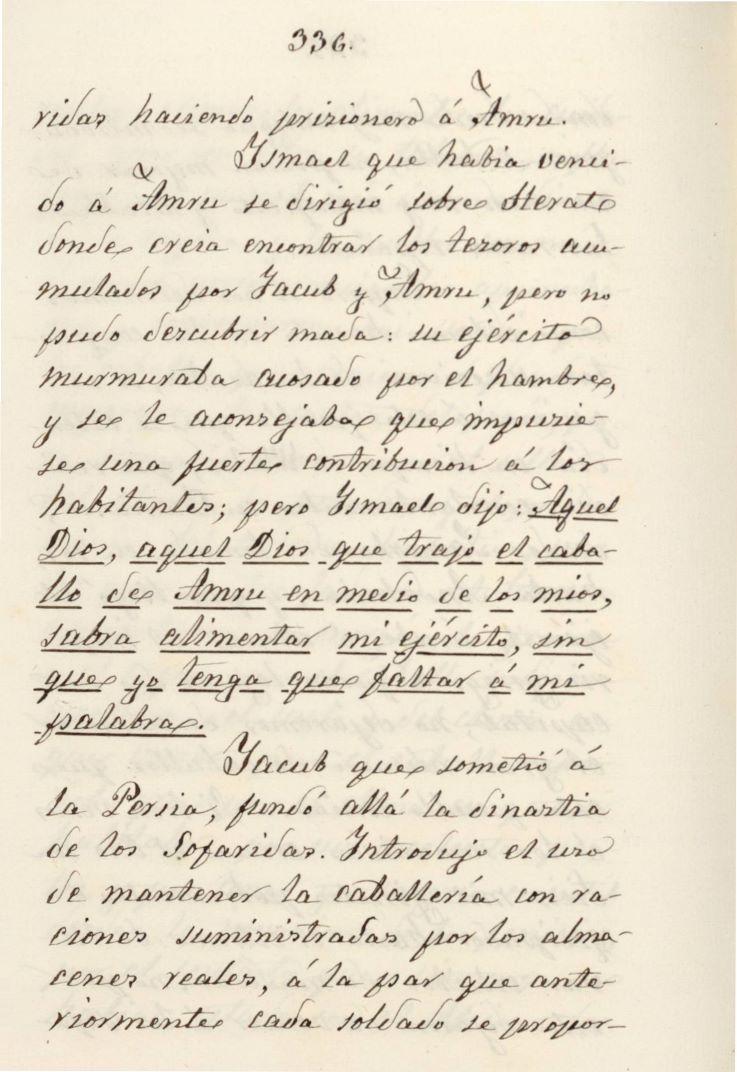 336.
ridas haciendo prizionero á Amru.
Ismael que habia venci-
do á Amru se dirigió sobre Herat
donde creia encontrar los tezoros acu-
mulados por Jacub y Amru, pero no
pudo dezcubrir mada: su ejército
murmuraba acosado por el hambre,
y se le aconzejaba que impuzie-
se una fuerte contribucion á los
habitantes; pero Ismael dijo: Aquel
Dios, aquel Dios que trajo el caba-
llo de Amru en medio de los mios,
sabra alimentar mi ejército, sin
que yo tenga que faltar á mi
palabra.
Jacub que sometió á
la Persia, fundó allá la dinastia
de los Sofaridas. Introdujo el uzo
de mantener la caballería con ra-
ciones suministradas por los alma-
cenes reales, á la par que ante-
riormente cada soldado se propor-